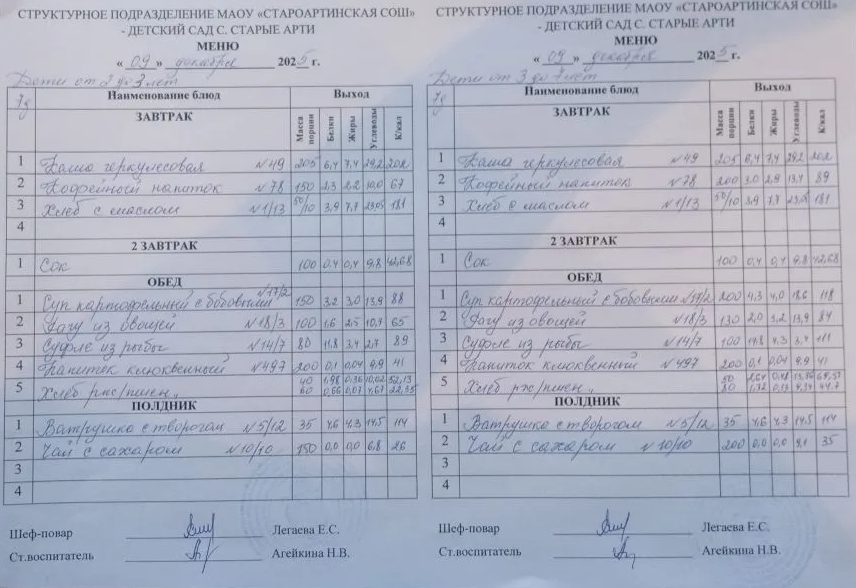 СТРУКТУРНОЕ ПОДРАЗДЕЛЕНИЕ МАОУ «СТАРОАРТИНСКАЯ СОШ»
- ДЕТСКИЙ САД С. СТАРЫЕ АРТИ
МЕНЮ
« 09 » декабря 2025 г.
Дети от 2 до 3 лет
7д Наименование блюд Выход
ЗАВТРАК Масса порции Белки Жиры Углеводы К/кал
1 Каша геркулесовая №49 205 6,4 7,4 29,2 202
2 Кофейный напиток №78 150 2,3 2,2 10,0 67
3 Хлеб с маслом №1/13 50/10 3,9 7,7 23,05 181
4
2 ЗАВТРАК
1 Сок 100 0,4 0,4 9,8 42,68
ОБЕД
1 Суп картофельный с бобовыми №17/2 150 3,2 3,0 13,9 88
2 Рагу из овощей №18/3 100 1,6 2,5 10,7 65
3 Суфле из рыбы №14/7 80 11,8 3,4 2,7 89
4 Напиток клюквенный №497 200 0,1 0,04 9,9 41
5 Хлеб рж/пшен. 40 1,98 0,36 10,02 52,13
60 0,66 0,07 4,67 22,35
ПОЛДНИК
1 Ватрушка с творогом №5/12 35 4,6 4,3 14,5 114
2 Чай с сахаром №10/10 150 0,0 0,0 6,8 26
3
4
Шеф-повар Легаева Е.С.
Ст.воспитатель Агейкина Н.В.
СТРУКТУРНОЕ ПОДРАЗДЕЛЕНИЕ МАОУ «СТАРОАРТИНСКАЯ СОШ»
- ДЕТСКИЙ САД С. СТАРЫЕ АРТИ
МЕНЮ
« 09 » декабря 2025 г.
Дети от 3 до 7 лет
7д Наименование блюд Выход
ЗАВТРАК Масса порции Белки Жиры Углеводы К/кал
1 Каша геркулесовая №49 205 6,4 7,4 29,2 202
2 Кофейный напиток №78 200 3,0 2,9 13,4 89
3 Хлеб с маслом №1/13 50/10 3,9 7,7 23,05 181
4
2 ЗАВТРАК
1 Сок 100 0,4 0,4 9,8 42,68
ОБЕД
1 Суп картофельный с бобовыми №17/2 200 4,3 4,0 18,6 118
2 Рагу из овощей №18/3 130 2,0 3,2 13,9 84
3 Суфле из рыбы №14/7 100 14,8 4,3 3,4 111
4 Напиток клюквенный №497 200 0,1 0,04 9,9 41
5 Хлеб рж/пшен. 50
80 44,7
ПОЛДНИК
1 Ватрушка с творогом №5/12 35 4,6 4,3 14,5 114
2 Чай с сахаром №10/10 200 0,0 0,0 9,1 35
3
4
Шеф-повар Легаева Е.С.
Ст.воспитатель Агейкина Н.В.